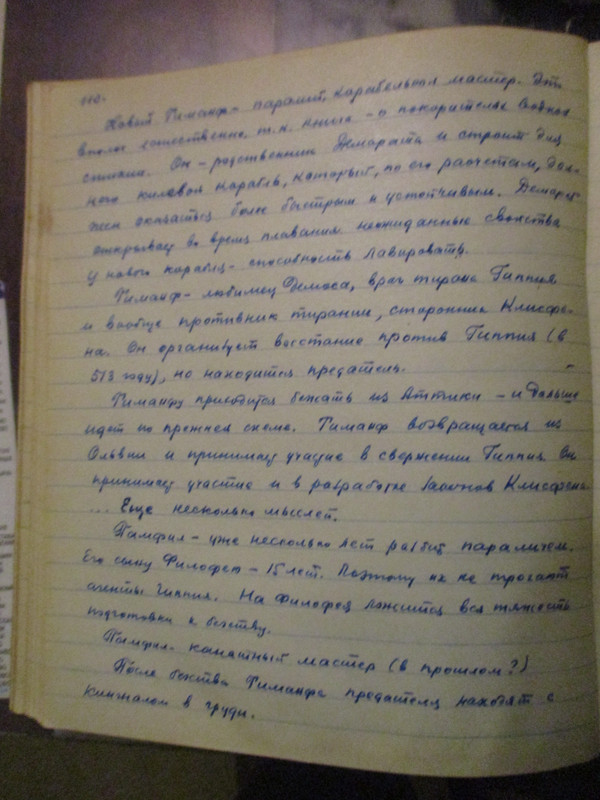 110.
Новый Тиманф - паралий, корабельный мастер. Это
вполне естественно, т.к. книга - о покорителях водной
стихии. Он - родственник Демарата и строит для
него килевой корабль, который, по его расчетам, дол-
жен оказаться более быстрым и устойчивым. Демарат
открывает во время плавания неожиданные свойства
у нового корабля - способность лавировать.
Тиманф - любимец Демоса, враг тирана Гиппия
и вообще противник тирании, сторонник Клисфе-
на. Он организует восстание против Гиппия (в
513 году), но находится предатель.
Тиманфу приходится бежать из Аттики - и дальше
идет по прежней схеме. Тиманф возвращается из
Ольвии и принимает участие в свержении Гиппия. Он
принимает участие и в разработке законов Клисфена.
... Еще несколько мыслей.
Памфил - уже несколько лет разбит параличем.
Его сыну Филофею - 15 лет. Поэтому их не трогают
агенты Гиппия. На Филофея ложится вся тяжесть
подготовки к бегству.
Памфил - канатный мастер (в прошлом?)
После бегства Тиманфа предателя находят с
кинжалом в груди.